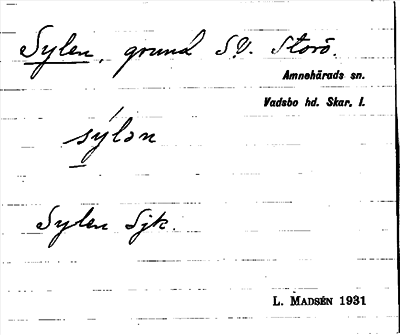 Sylen, grund S.V. Storö.
Amnehärads sn.
Vadsbo hd. Skar. l.
sýlən
Sylen Sjk.
L. MADSÉN 1931